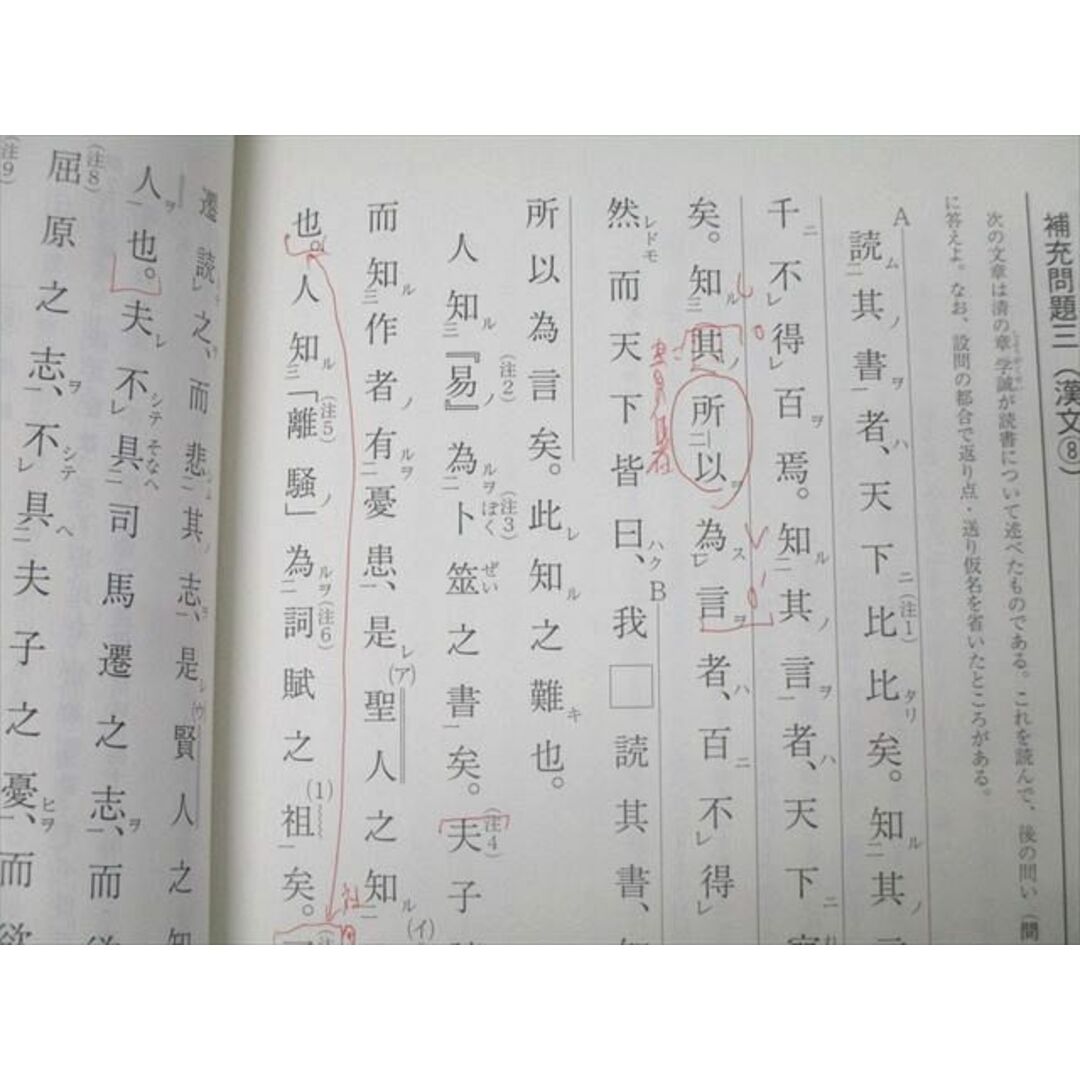 補充問題三(漢文⑧)
次の文章は清の章学誠が読書について述べたものである。これを読んで、後の問い(問
に答えよ。なお、設問の都合で返り点・送り仮名を省いたところがある。
A
読ム二其ノ書ヲ一者ハ、天下ニ(注1)比比タリ矣。知ル二其ノ
千ニ不レ得レ百ヲ焉。知ル二其ノ言ヲ一者ハ、天下ニ
矣。知ル三其ノ所二以ヲ為スレ言ヲ一者ハ、百ニ不レ得レ
然レドモ而天下皆曰ハク、B我□読其書、
所以為言矣。此レ知ルノ之難キ也。
人知ル三『易』ノ(注2)為ルヲ二卜筮ぼくぜい(注3)之書一矣。夫子(注4)
而知ル三作者ノ有ルヲ二憂患一、是レ(ア)聖人之知ル二(イ)
也。人知ル三「離騒」ノ(注5)為ルヲ二詞賦(注6)之祖(1)一矣。
遷読レ之ヲ而悲二其ノ志ヲ一、是レ(ウ)賢人之知
人ヲ一也。夫レ不シテレ具そなへ二司馬遷之志ヲ一、而
屈原(注8)之志ヲ一、不シテレ具ヘ二夫子之憂ヒヲ一、而欲
(注9)